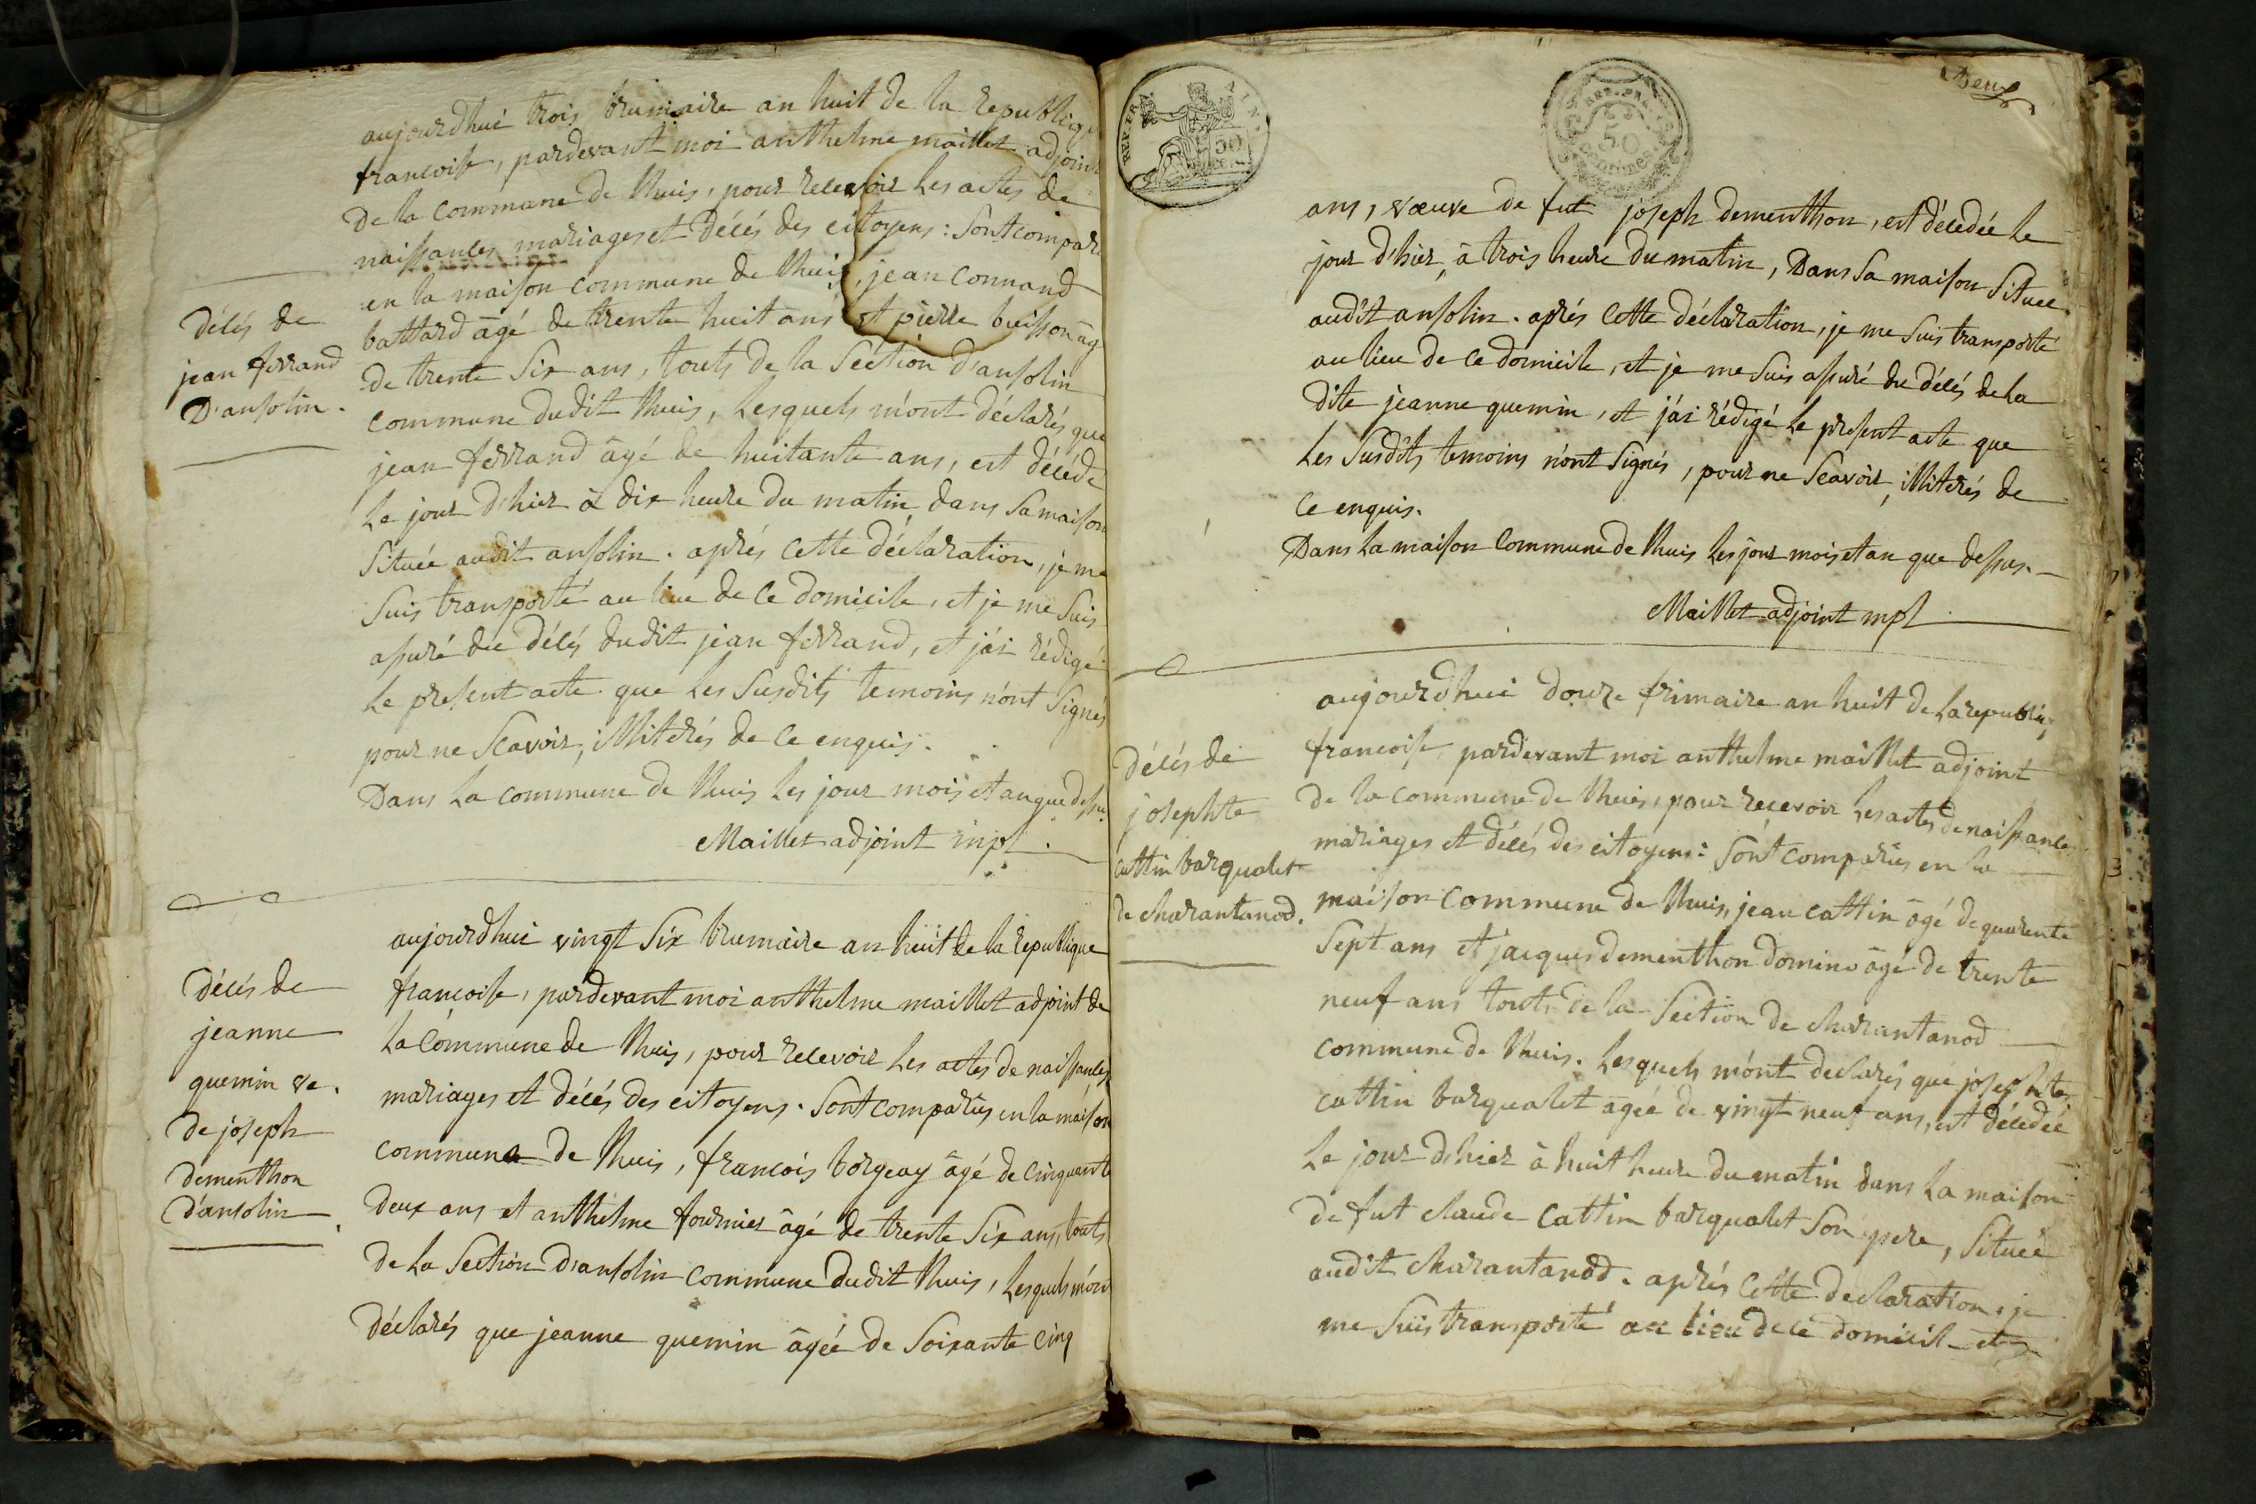 aujourdhui trois brumaire an huit de la republiq
francoise, pardevant moi anthelme maillet adjoint
De la commune de Lhuis, pour recevoir les actes de
naissances mariages et décés des citoyens : Sont compar
en la maison commune de Lhuis, jean Connand
battard âgé de trente huit ans et pierre buisson âg
de trente Six ans, touts de la Section D'ansolin
Commune dudit Lhuis, Lesquels m'ont déclarés que
jean ferrand âgé de huitante ans, est décédé
le jour d'hier à dix heure du matin dans Sa maison
Située audit ansolin. aprés cette déclaration, je me
Suis transporté au lieu de ce domicile, et je me Suis
assuré du décés dudit jean ferrand, et j'ai rédigé
le present acte que les Susdits temoins n'ont Signés
pour ne Scavoir, illiterés de ce enquis.
Dans la commune de Lhuis les jour mois et an que dessu
Maillet adjoint mpl
Décés de
jean ferrand
D'ansolin.
aujourdhui vingt Six brumaire an huit de la republique
francoise, pardevant moi anthelme maillet adjoint de
la Commune de Lhuis, pour recevoir les actes de naissances
mariages et décés des citoyens. Sont comparûs en la maison
commune de Lhuis, francois borgeay âgé de cinquante
deux ans et anthelme fournier âgé de trente Six ans, touts
de la Section D'ansolin commune dudit Lhuis, lesquels m'on
déclarés que jeanne quemin âgée de Soixante cinq
Décés de
jeanne
quemin ve.
De joseph
dementhon
D'ansolin
REP. FRA.
50
REP. FRA.
50
centimes
Deux
ans, vœuve de fut joseph dementhon, est décedée le
jour d'hier, à trois heure du matin, Dans Sa maison Située
audit ansolin. aprés cette déclaration, je me Suis transporté
au lieu de ce domicile, et je me Suis assuré du décés de la
dite jeanne quemin, et j'ai rédigé le present acte que
les Susdits temoins n'ont Signés, pour ne Scavoir, illiterés de
ce enquis.
Dans la maison Commune de Lhuis les jour mois et an que dessus.
Maillet adjoint mpl
aujourdhui douze frimaire an huit de la republiq,
francoise, pardevant moi anthelme maillet adjoint
de la commune de Lhuis, pour recevoir les actes de naissance
mariages et décés des citoyens : Sont comparûs en la
maison Commune de Lhuis, jean cattin âgé de quarente
Sept ans et jacques dementhon domino âgé de trente
neuf ans touts de la Section de charantanod
commune de Lhuis. Lesquels m'ont declarés que josephte
cattin barqualet agée de vingt neuf ans, est décédée
le jour d'hier à huit heure du matin dans la maison
de fut claude cattin barqualet Son pere, Située
audit charantanod. aprés cette declaration, je
me Suis transporté au lieu de ce domicil et
Décés de
josephte
cattin barqualet
de charantanod.